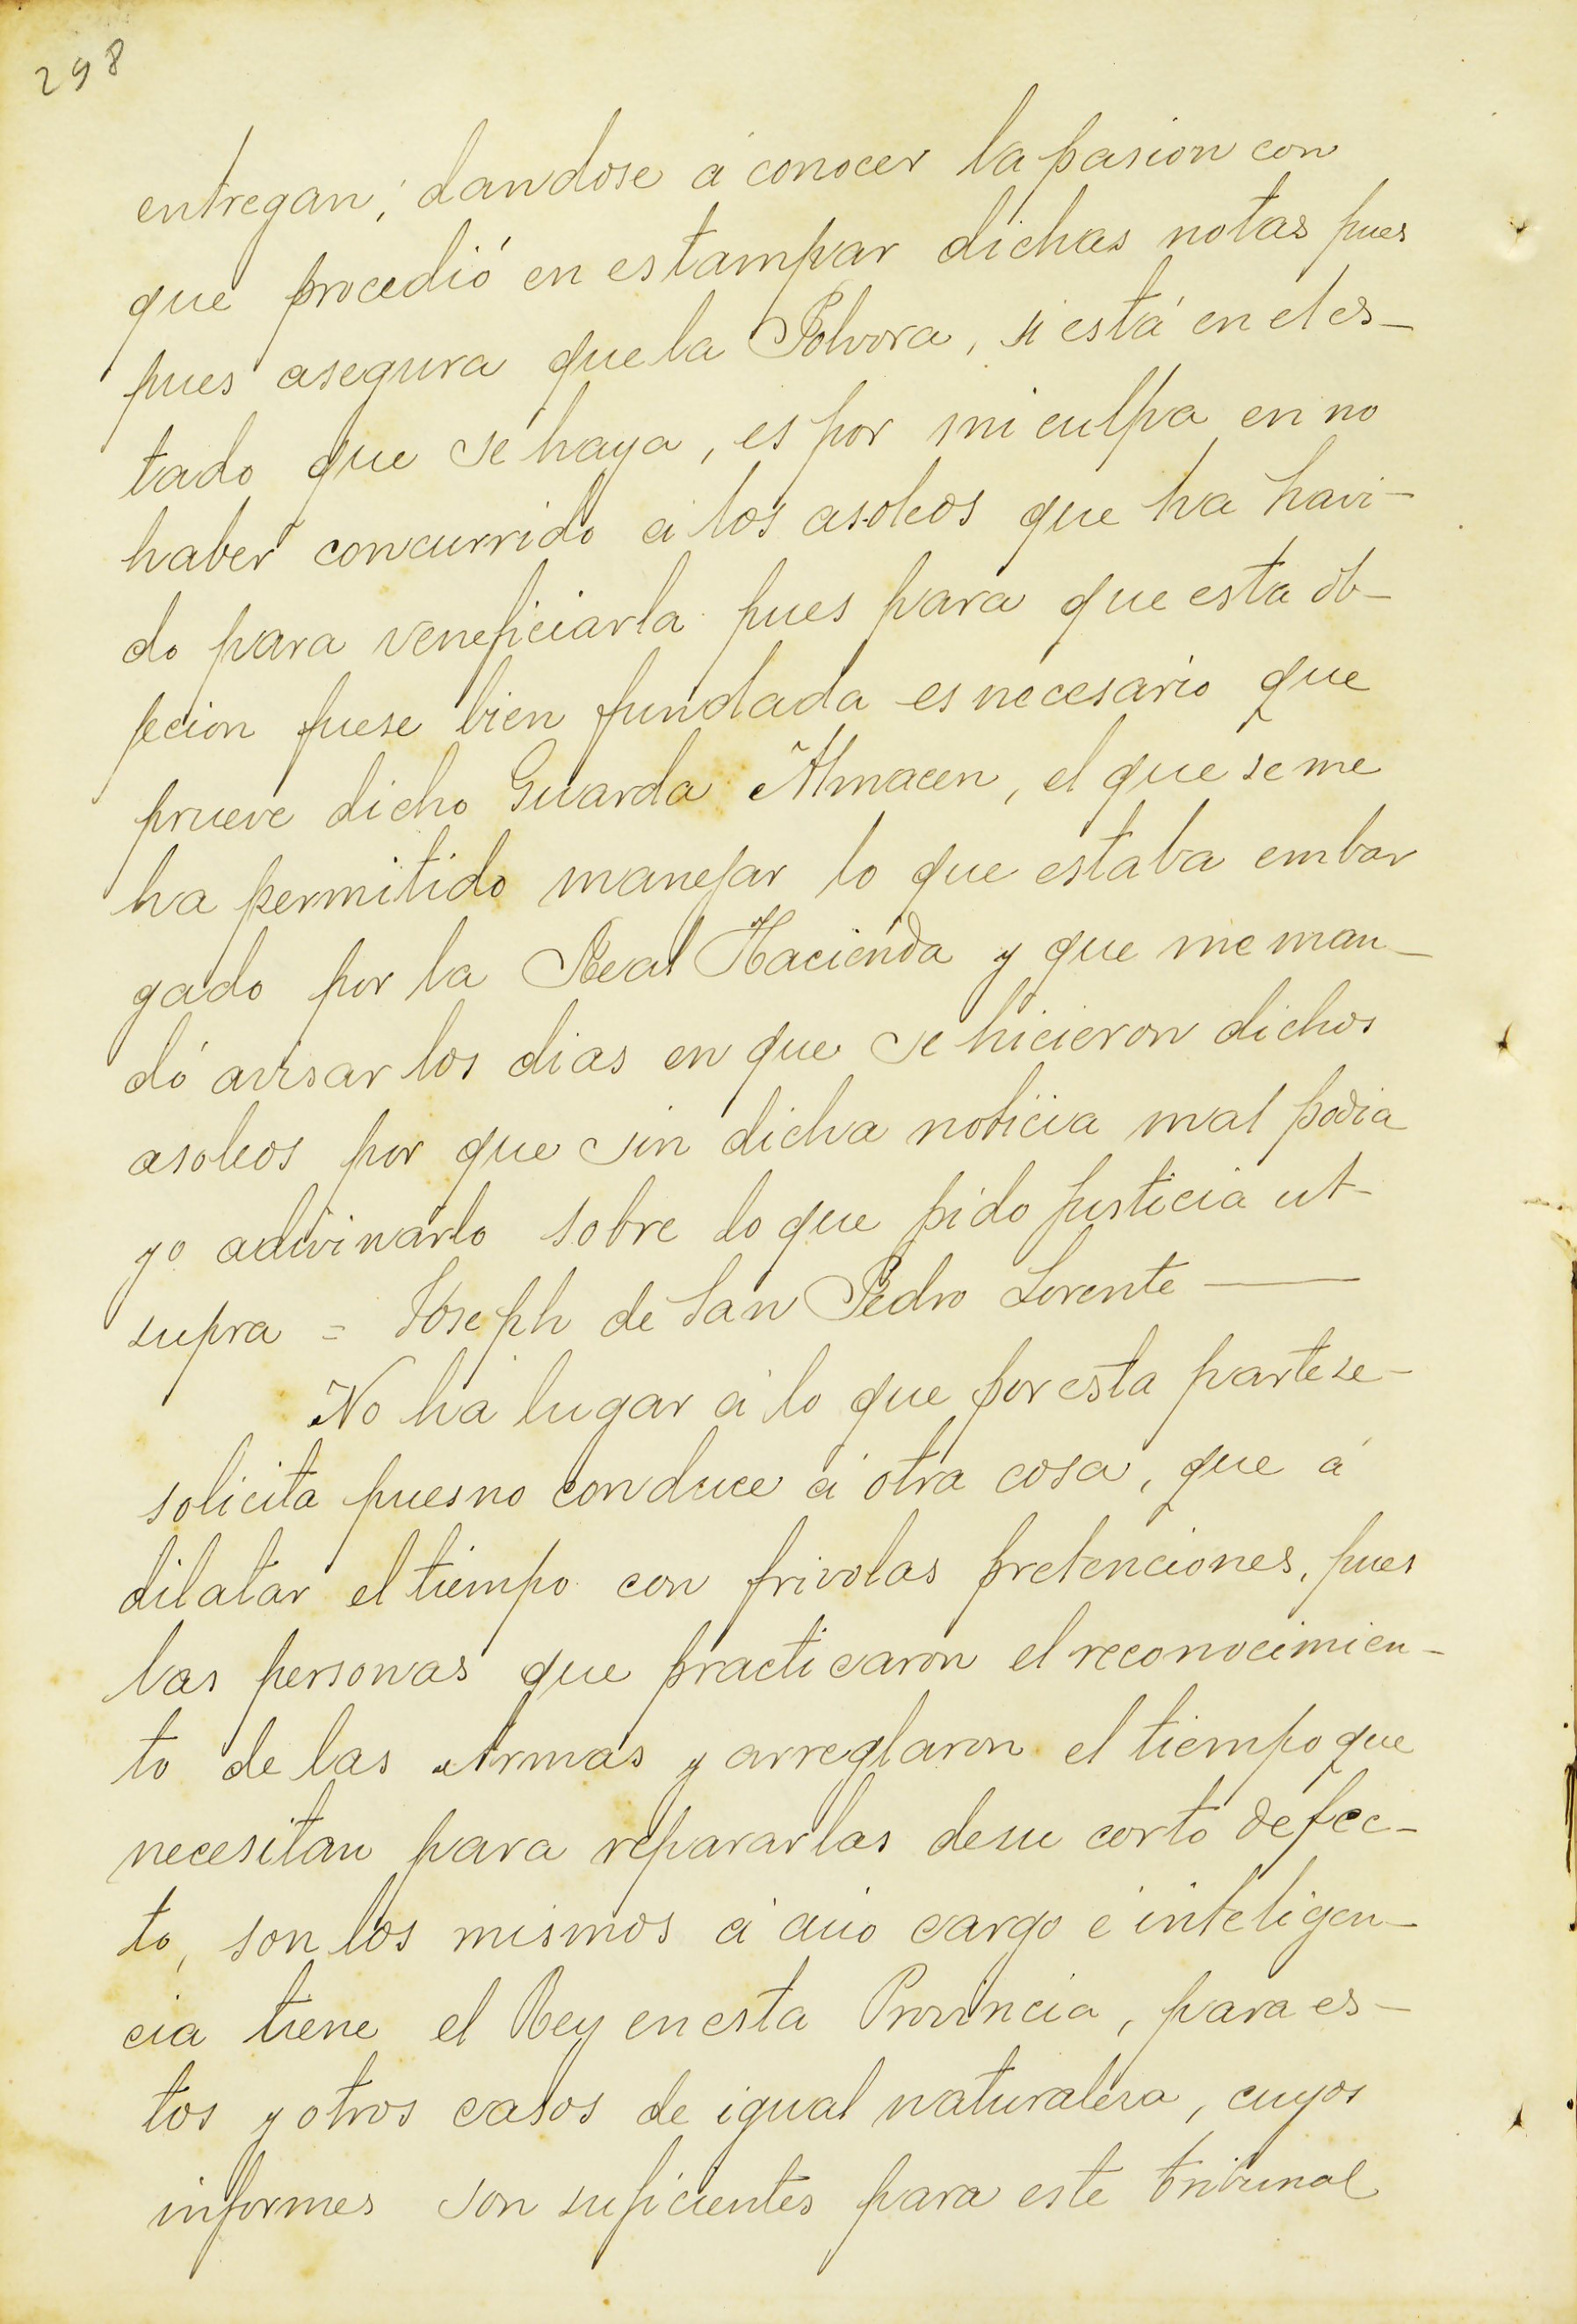 298
entregan, dandose á conocer la pasion con
que procedió en estampar dichas notas pues
pues asegura que la Polvora, si está en el es-
tado que se haya, es por mi culpa en no
haber concurrido á los asoleos que ha havi-
do para veneficiarla pues para que esta ob-
jecion fuese bien fundada es necesario que
prueve dicho Guarda Almacen, el que se me
ha permitido manejar lo que estaba embar
gado por la Real Hacienda y que me man-
dó avisar los dias en que se hicieron dichos
asoleos por que sin dicha noticia mal podia
yo adivinarlo sobre lo que pido justicia ut
supra = Joseph de San Pedro Lorente
No ha lugar á lo que por esta parte se-
solicita pues no conduce á otra cosa, que á
dilatar el tiempo con frivolas pretenciones, pues
las personas que practicaron el reconocimien-
to de las Armas y arreglaron el tiempo que
necesitan para repararlas de su corto defec-
to, son los mismos á cuio cargo é inteligen-
cia tiene el Rey en esta Provincia, para es-
tos y otros casos de igual naturalesa, cuyos
informes son suficientes para este tribunal